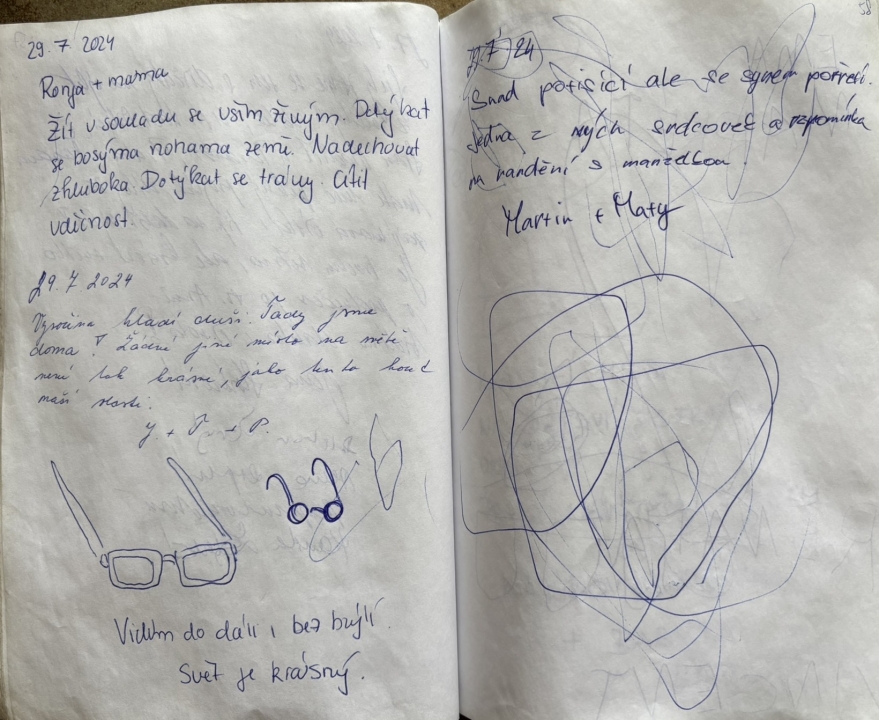 29.7.2024
Ronja + mama
Žít v souladu se vším živým. Dotýkat
se bosýma nohama země. Nadechovat
zhluboka. Dotýkat se trávy. Cítit
vděčnost.
29.7.2024
Vysočina hladí duši. Tady jsme
doma! Žádné jiné místo na světě
není tak krásné, jako tento kout
naší vlasti.
J + T + P.
Vidím do dáli i bez brýlí.
Svět je krásný.
58
29.7.24
Snad potisící ale se synem poprvé.
Jedna z mých srdcovek a vzpomínka
na randění s manželkou.
Martin + Maty